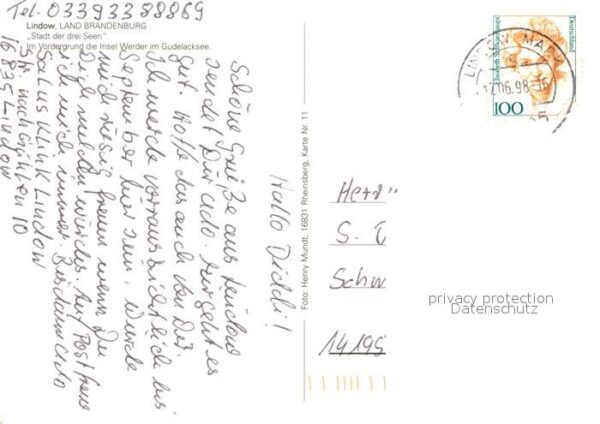 Tel. 03393388869
Lindow, LAND BRANDENBURG
„Stadt der drei Seen"
Im Vordergrund die Insel Werder im Gudelacksee.
Hallo Diddi!
Schöne Grüße aus Lindow
sendet Dir Udo. Mir geht es
gut. Hoffe das auch von Dir.
Ich werde vorraussichtlich bis
September hier sein. Würde
mich riesig freuen wenn Du
Dich melden würdest. Auf Post freue
ich mich immer. Bis dann Udo
Salus Klinik Lindow
Str. nach Gühlen 10
16835 Lindow
Foto: Henry Mundt, 16831 Rheinsberg, Karte Nr. 11
Herr
S.
Schw
14195
Deutschland
100
LINDOW MARK
06.98-16
privacy protection
Datenschutz